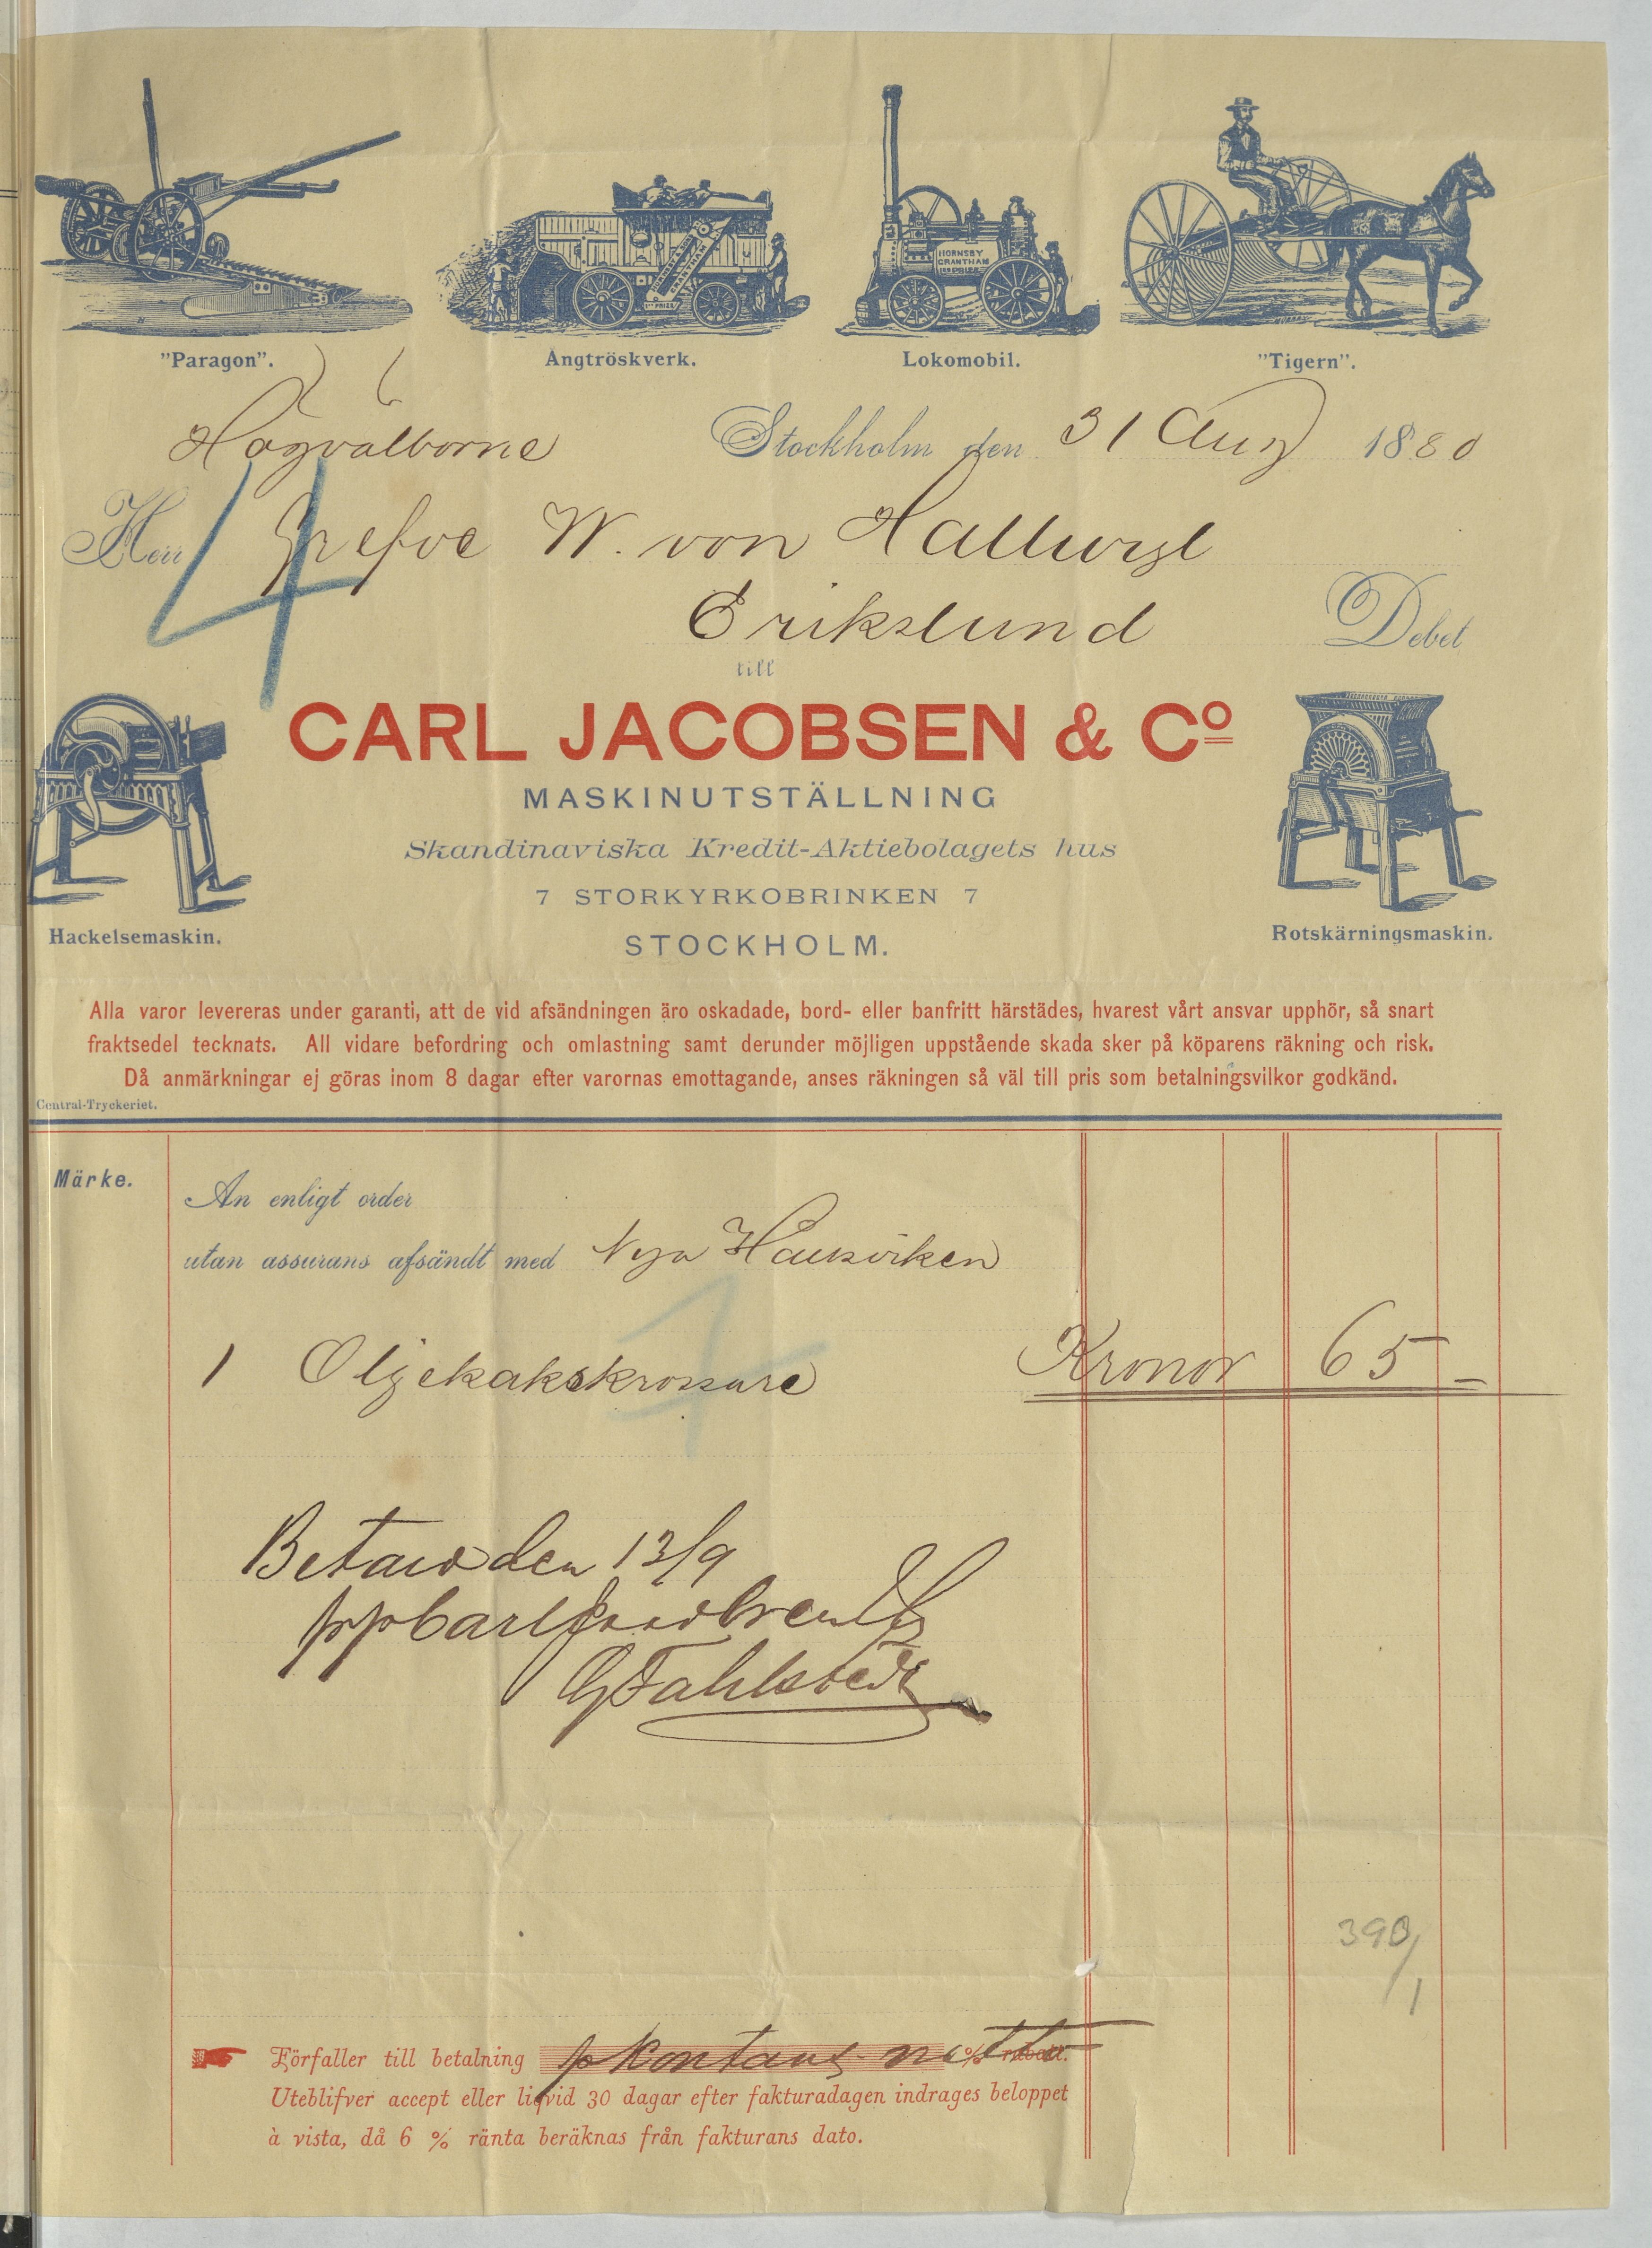 "Paragon". Ångtröskverk. Lokomobil. "Tigern".
HORNSBY
GRANTHAM
Högvälborne Stockholm den 31 Aug 1880
Herr Grefve W. von Hallwyl
4
Erikslund Debet
till
CARL JACOBSEN & Co
MASKINUTSTÄLLNING
Skandinaviska Kredit-Aktiebolagets hus
7 STORKYRKOBRINKEN 7
STOCKHOLM.
Hackelsemaskin. Rotskärningsmaskin.
Alla varor levereras under garanti, att de vid afsändningen äro oskadade, bord- eller banfritt härstädes, hvarest vårt ansvar upphör, så snart
fraktsedel tecknats. All vidare befordring och omlastning samt derunder möjligen uppstående skada sker på köparens räkning och risk.
Då anmärkningar ej göras inom 8 dagar efter varornas emottagande, anses räkningen så väl till pris som betalningsvilkor godkänd.
Central-Tryckeriet.
Märke.
An enligt order
utan assurans afsändt med Nya
1 Oljekakskrossare Kronor 65 –
Betald den 13/9
pp Carl Jacobsen & Co
G Fahlstedt
390/1
Förfaller till betalning p kontant netto % rabatt.
Uteblifver accept eller liqvid 30 dagar efter fakturadagen indrages beloppet
à vista, då 6 % ränta beräknas från fakturans dato.